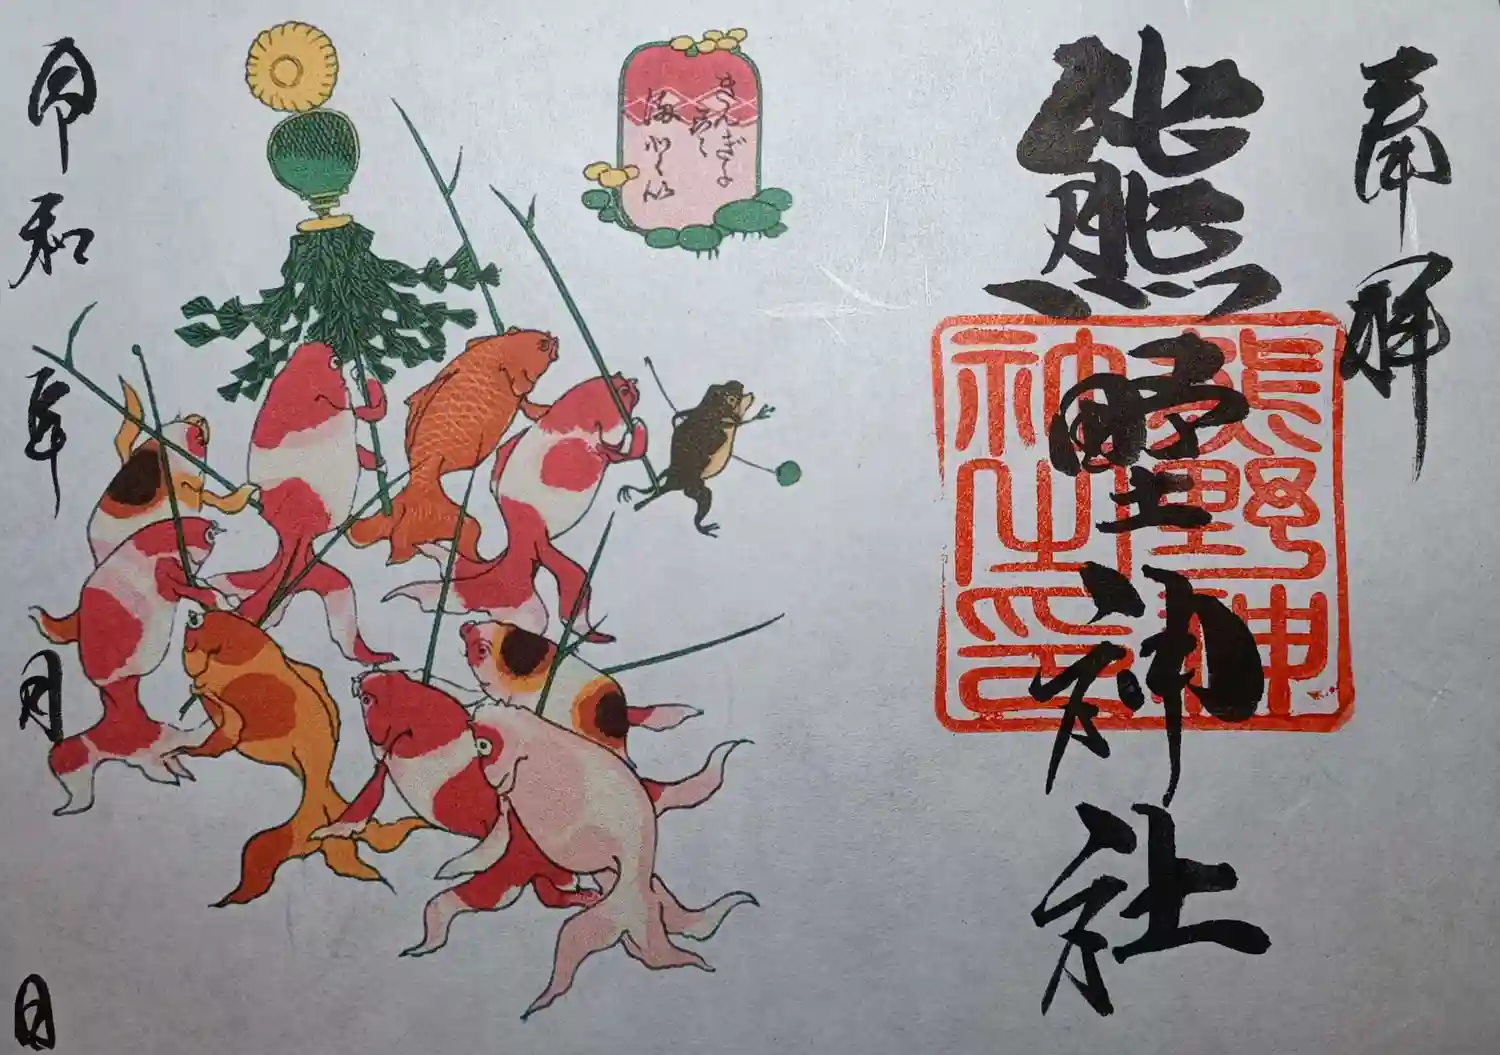 奉拝
熊野神社
熊野神
社之印
きんぎょ
づくし
まとい
令和 年 月 日